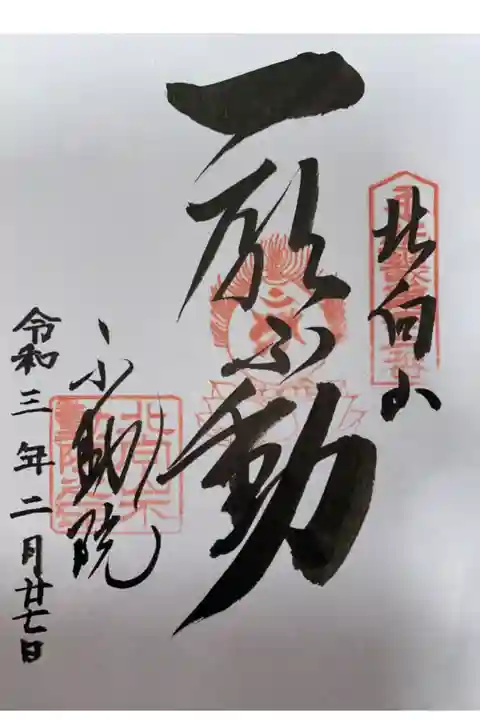 北向山
一願不動
不動院
令和三年二月廿七日